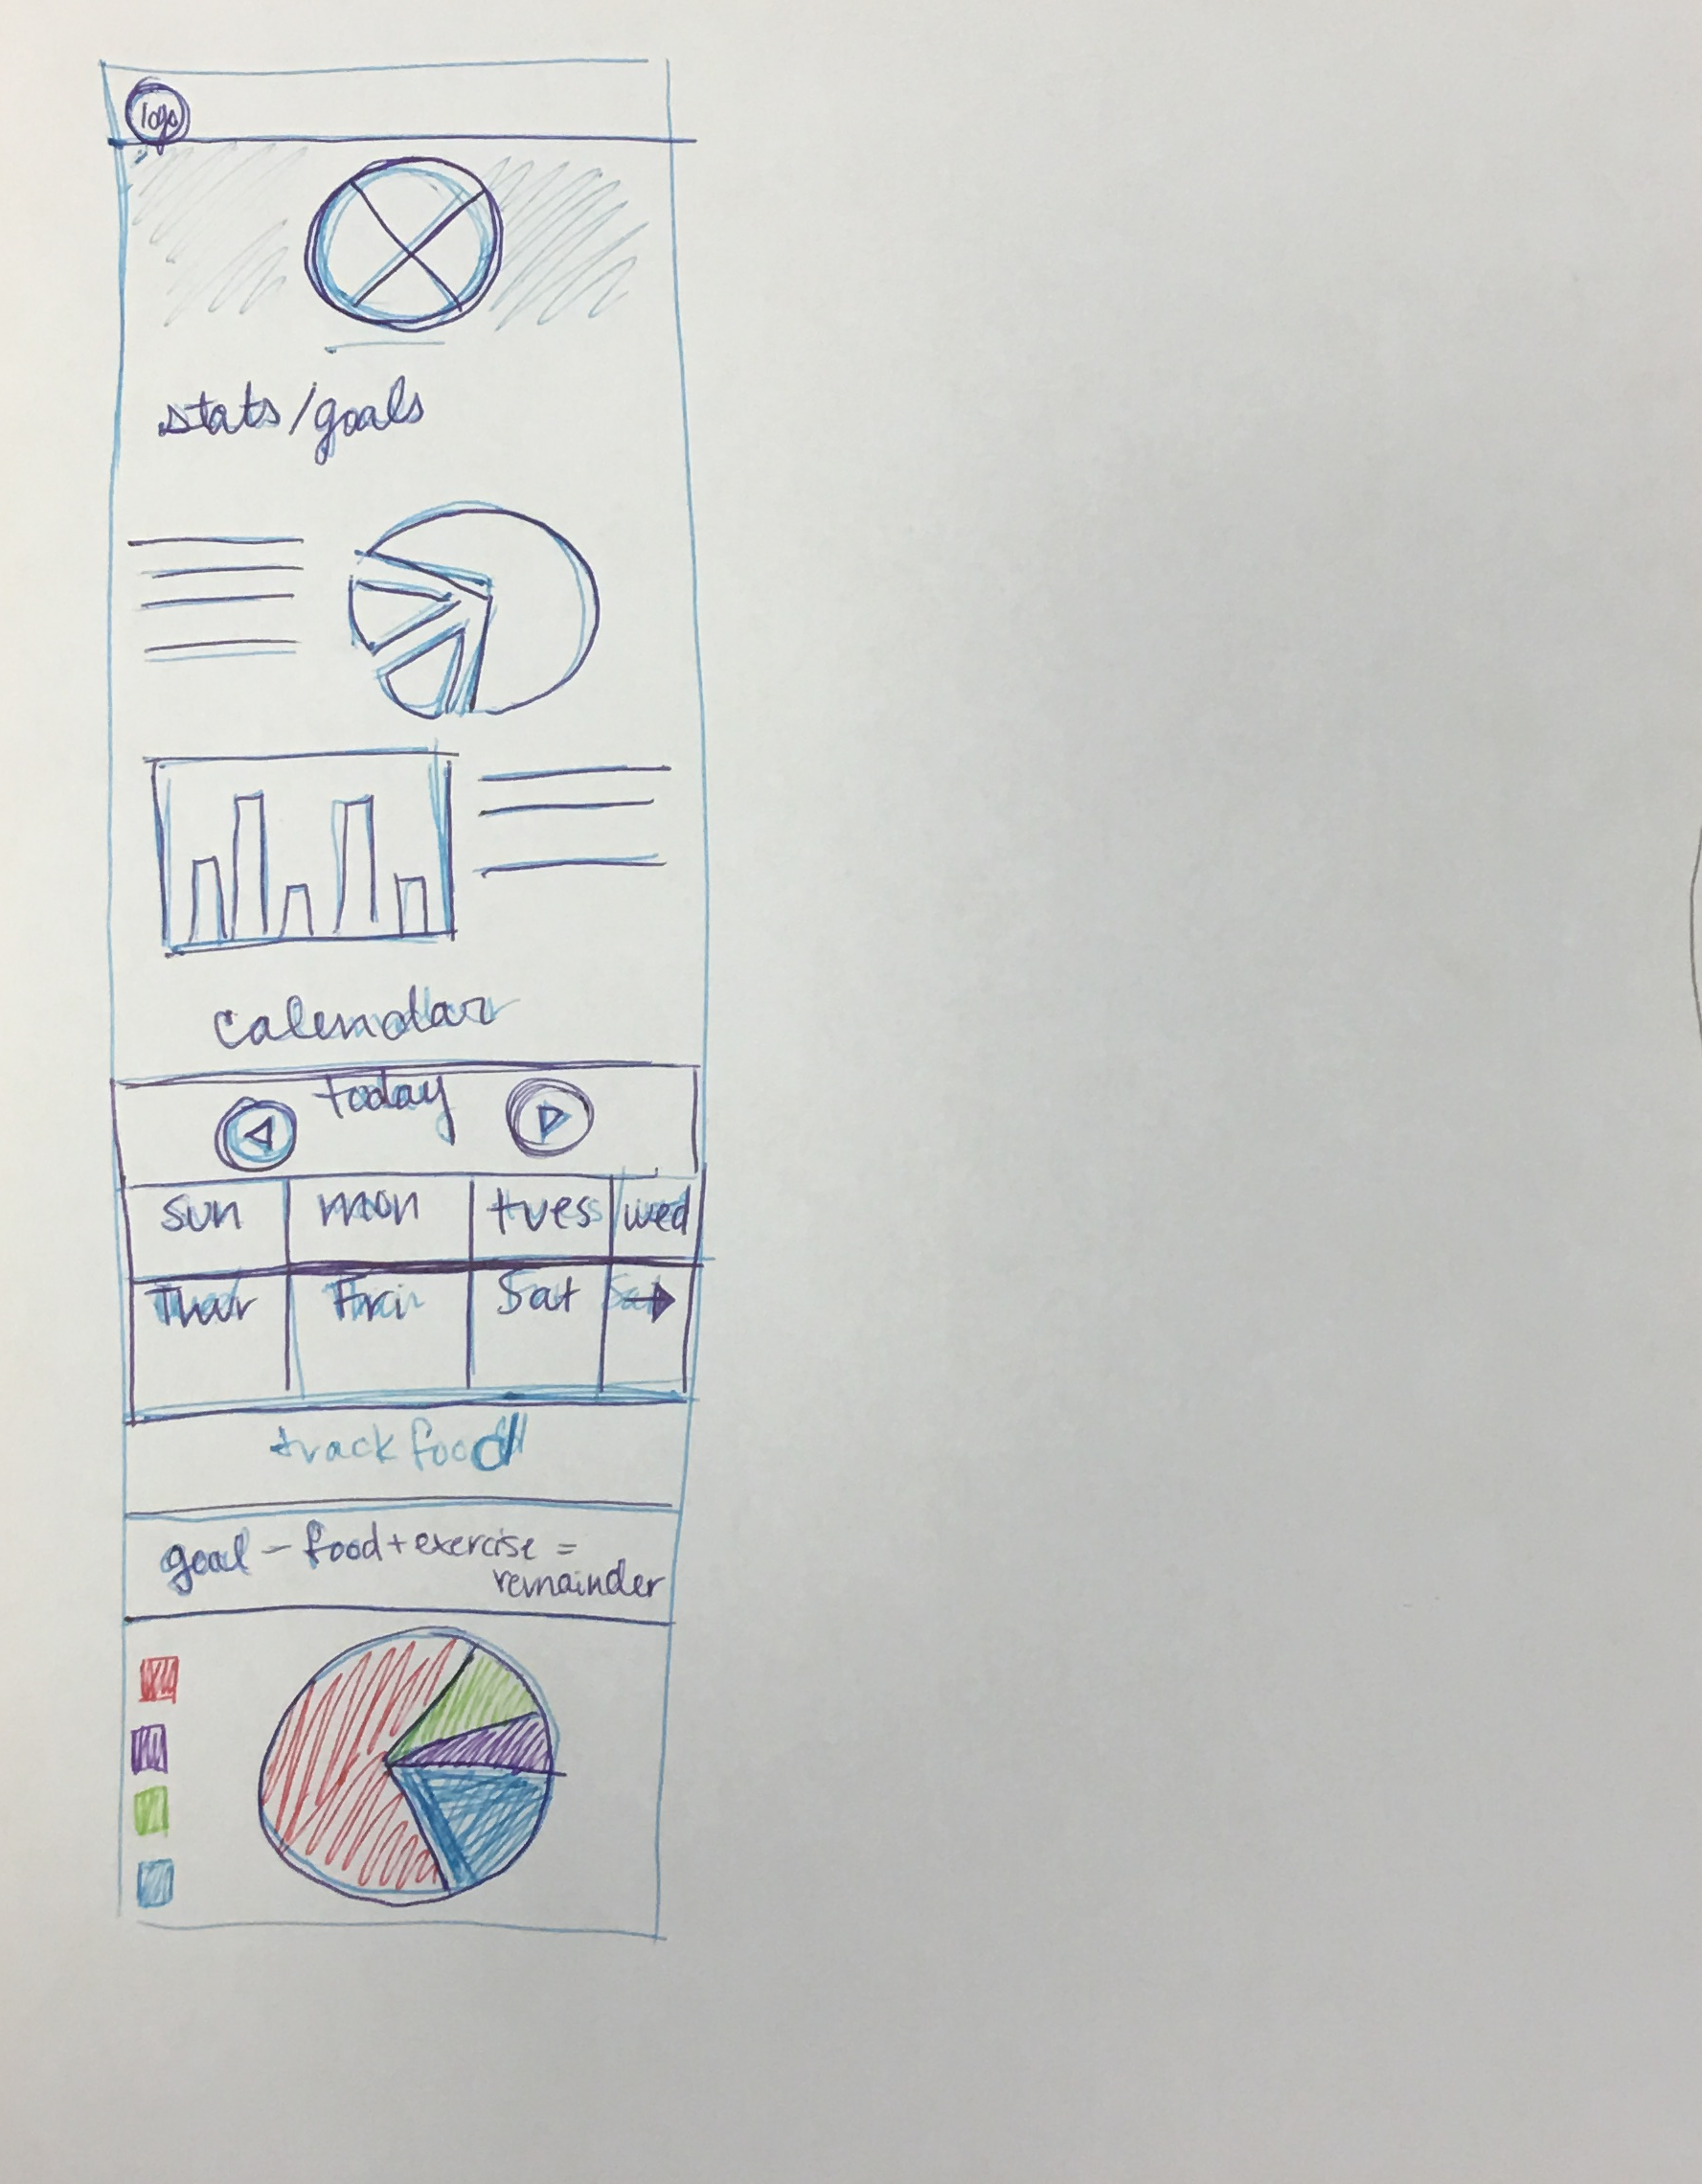 logo
stats/goals
calendar
today
sun mon tues wed
Thur Fri Sat
track food
goal - food + exercise =
remainder